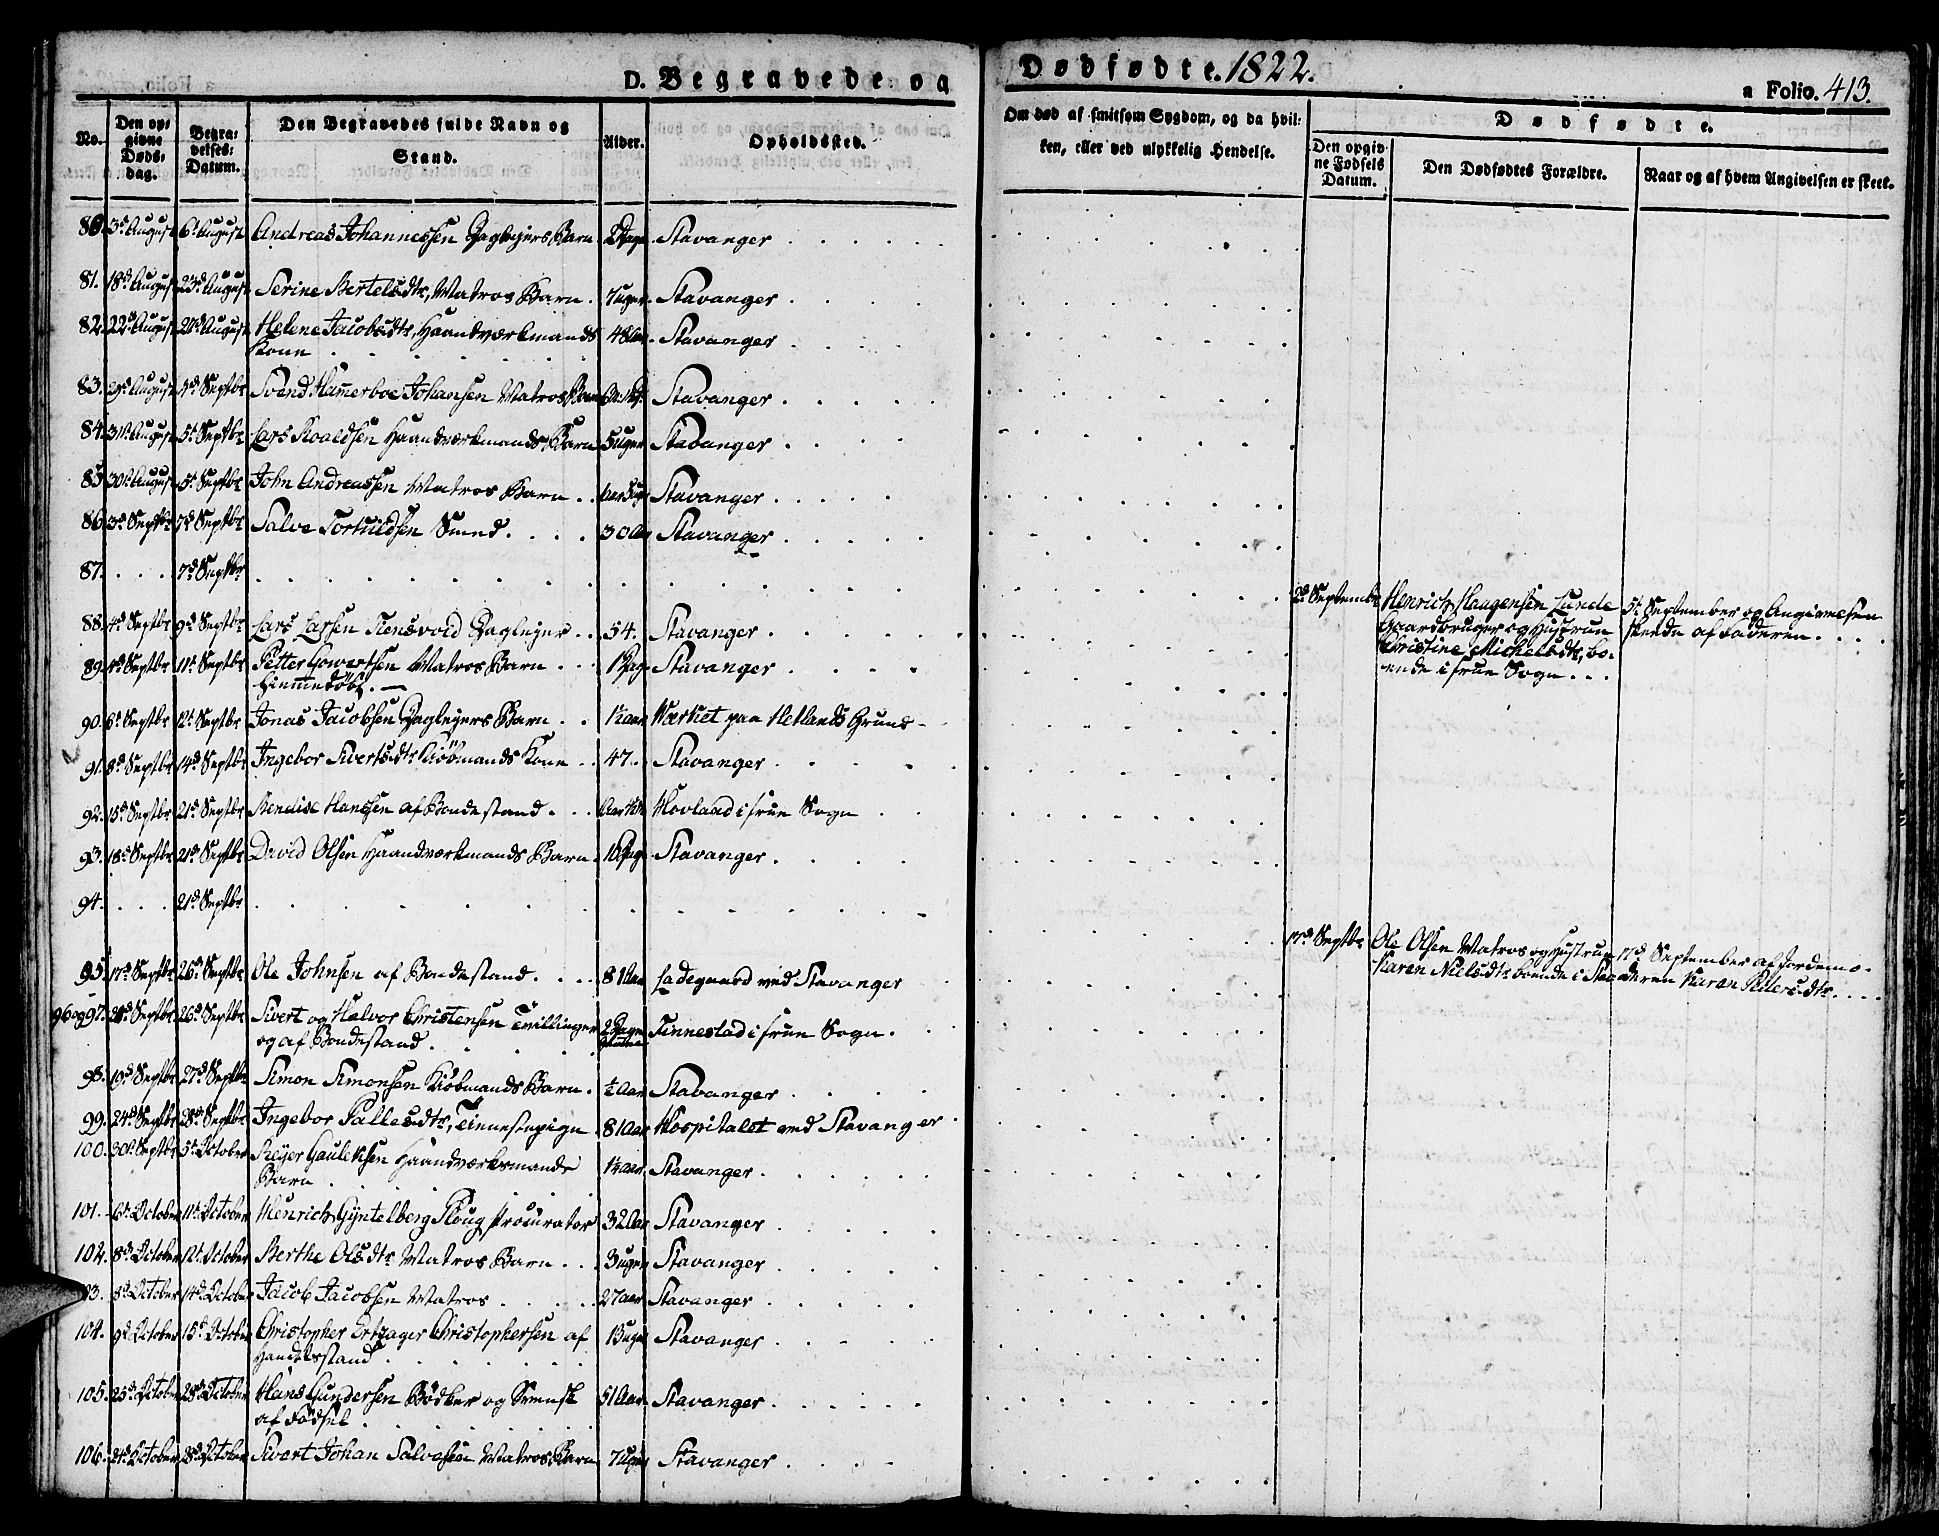 D. Begravede og
Dødfødte. 1822.
a Folio. 413.
No.
Den opgivne Døds-dag.
Begravelses-Datum.
Den Begravedes fulde Navn og Stand.
Alder.
Opholdssted.
Om død af smitsom Sygdom, og da hvilken, eller ved ulykkelig Hendelse.
Dødfødte.
Den opgivne Fødsels Datum.
Den Dødfødtes Forældre.
Naar og af hvem Angivelsen er skeet.
80. 3d August 6t August Andreas Johannessen Daglejers Barn Stavanger
81. 18d August 23d August Serine Bertelsdtr, Matros Barn 7 uger Stavanger
82. 22d August 27d August Helene Jacobsdtr Haandværkmands 48 Aar Stavanger
Kone
83. 29d August 4d Septbr Svend Hamerboe Johansen Matros Barn Stavanger
84. 31t August 5t Septbr Lars Roaldsen Haandværkmands Barn 5 uger Stavanger
85 30t August 5t Septbr John Andreassen Matros Barn Stavanger
86 3d Septbr 7d Septbr Salve Smed 30 Aar Stavanger
87. 7d Septbr
2d Septembr Henrich Haugensen Lunde 5t September og Angivelsen
Gaardbruger og Hustrue skeede af Faderen
Christine Michelsdtr, bo-
ende i frue Sogn
88. 4d Septbr 9d Septbr Lars Larsen Daglejer 54. Stavanger
89. 4d Septbr 11t Septbr Petter Matros Barn 1 Dag Stavanger
Hiemmedöbt.
90. 6t Septbr 12t Septbr Jonas Jacobsen Daglejers Barn 1½ aar Værket paa Hetlands Grund
91. 8d Septbr 14d Septbr Ingebor Sivertsdtr Kiöbmands Kone 47. Stavanger
92. 15d Septbr 21d Septbr Bendixe Hanssen af Bondestand Hovland i frue Sogn
93. 18d Septbr 21d Septbr David Olsen Haandværkmands Barn Stavanger
94. 21d Septbr
17d Septbr Ole Olsen Matros og Hustrue 17d September af Jordemo-
Karen Nielsdtr boende i Sta deren Karen Pedersdtr
95. 17d Septbr 26t Septbr Ole Johnsen af Bondestand 81 Aar Ladegaard ved Stavanger
96 og 97. Septbr 26d Septbr Sivert og Halvor Christensen Tvillinger 2 Dage Finnestad i frue Sogn
og af Bondestand
98. 19d Septbr 27d Septbr Simon Simonsen Kiöbmands Barn ½ Aar Stavanger
99. 24d Septbr 28d Septbr Ingebor Pallesdtr, Tienestepige 81 Aar Hospitalet ved Stavanger
100. 30t Septbr 5t October Reijer Gauleksen Haandværksmands 1½ aar Stavanger
Barn
101. 6t October 11t October Henrich Gyntelberg Ploug Procurator 32 Aar Stavanger
102. 8d October 12t October Berthe Olsdtr Matros Barn 3 uger Stavanger
03. 8d October 14d October Jacob Jacobsen Matros 27 aar Stavanger
104. 9d October 15d October Christopher Ertzager Christophersen af 13 uger Stavanger
Handelsstand
105. 25d October 28d October Hans Gundersen Bödker og Svensk 51 Aar Stavanger
af Födsel
106. 24d October 28d October Sivert Johan Salvesen Matros Barn 7 Uger Stavanger